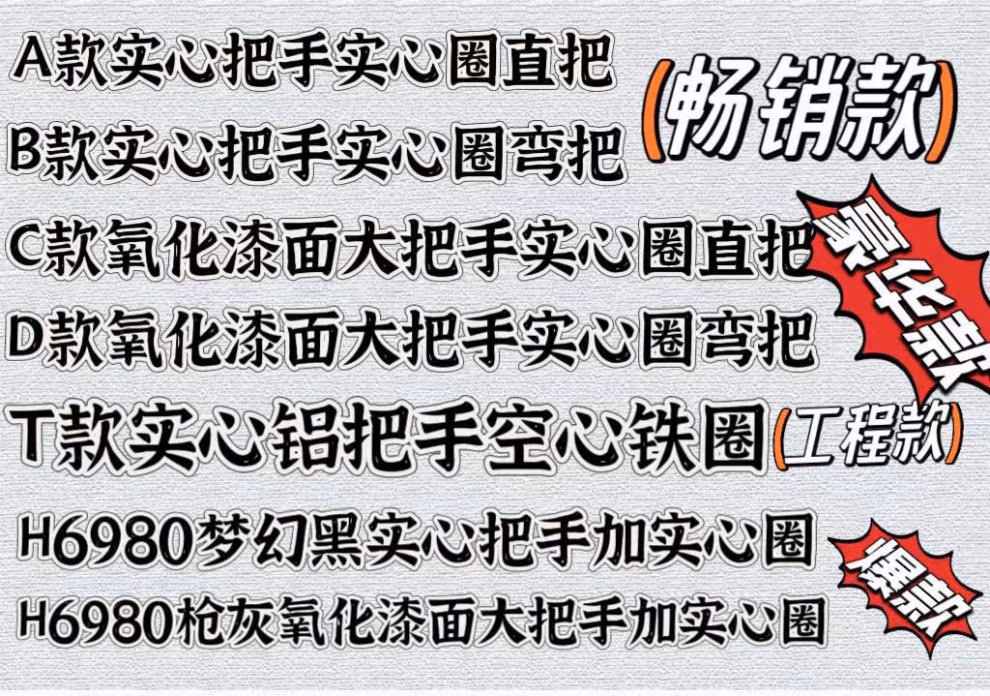 A款实心把手实心圈直把
(畅销款)
B款实心把手实心圈弯把
C款氧化漆面大把手实心圈直把
豪华款
D款氧化漆面大把手实心圈弯把
T款实心铝把手空心铁圈(工程款)
H6980梦幻黑实心把手加实心圈
爆款
H6980枪灰氧化漆面大把手加实心圈